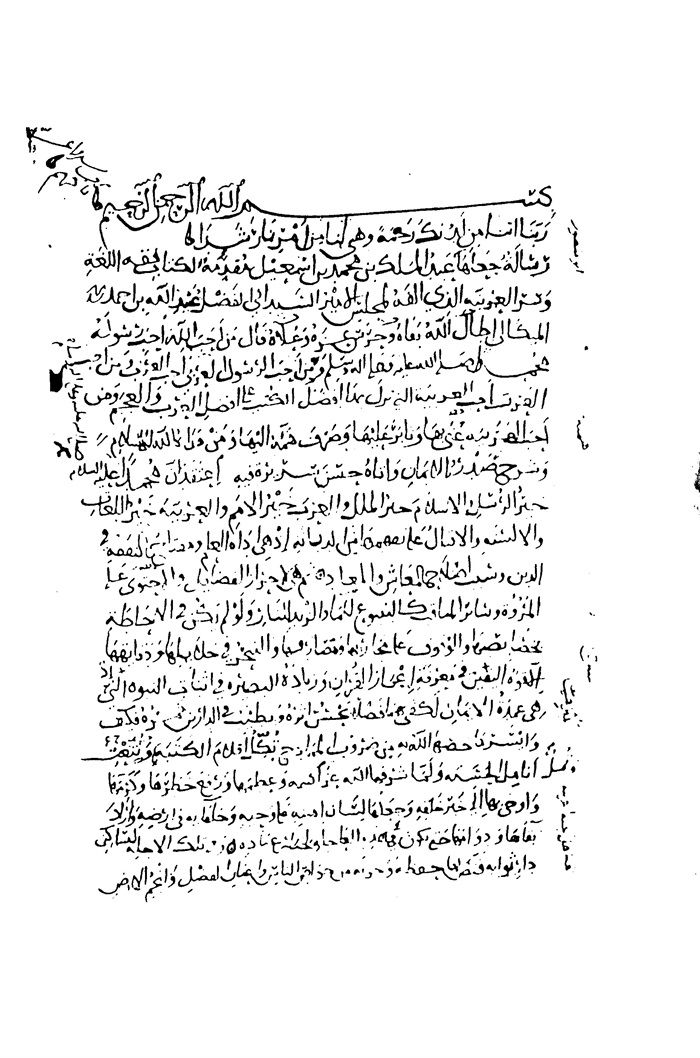 بسم الله الرحمن الرحيم
ربنا اتنا من لدنك رحمة وهي لنا من امرنا رشدا
رسالة جعلها عبد الملك بن محمد بن اسمعيل مقدمة لكتاب فقه اللغة
وسر العربية الذي الفه لمجلس الامير السيد ابي الفضل عبيد الله بن احمد
الميكالي اطال الله بقاه وحرس عزه وعلاه قال من احب الله احب رسوله
محمدا صلى الله عليه وعلى اله وسلم ومن احب الرسول العربي احب العرب ومن احب
العرب احب العربية التي نزل بها افضل الكتب على افضل العرب والعجم ومن
احب العربية عني بها وثابر عليها وصرف همته اليها ومن هداه الله للاسلام
وشرح صدره للايمان واتاه حسن سريرة فيه اعتقد ان محمدا عليه السلام
خير الرسل والاسلام خير الملل والعرب خير الامم والعربية خير اللغات
والالسنة والاقبال على تفهمها من الديانة اذ هي اداة العلم ومفتاح التفقه في
الدين وسبب اصلاح المعاش والمعاد ثم هي لاحراز الفضايل والاحتوى على
المروة وساير المناقب كالينبوع للما والزند للنار ولو لم يكن في الاحاطة
بخصايصها والوقوف على مجاريها ومصارفها والتبحر في جلايلها ودقايقها
الا قوة اليقين في معرفة اعجاز القران وزيادة البصيرة في اثبات النبوة التي
هي عمدة الايمان لكفى بهما فضلا يحسن اثره ويطيب في الدارين ثمره فكيف
وايسر ما خصها الله به من ضروب الممادح يكل اقلام الكتبة ويتعب
انامل الحسبة ولما شرفها الله عز اسمه وعظمها ورفع خطرها وكرمها
واوحى بها الى خير خلقه وجعلها لسان امينه على وحيه وخلفايه في ارضه واراد
بقاها ودوامها حتى تكون في هذه العاجلة لخيار عباده وفي تلك الاجلة لساكني
دار ثوابه قيض لها حفظة وخزنة من خواص الناس واعيان الفضل وانجم الارض